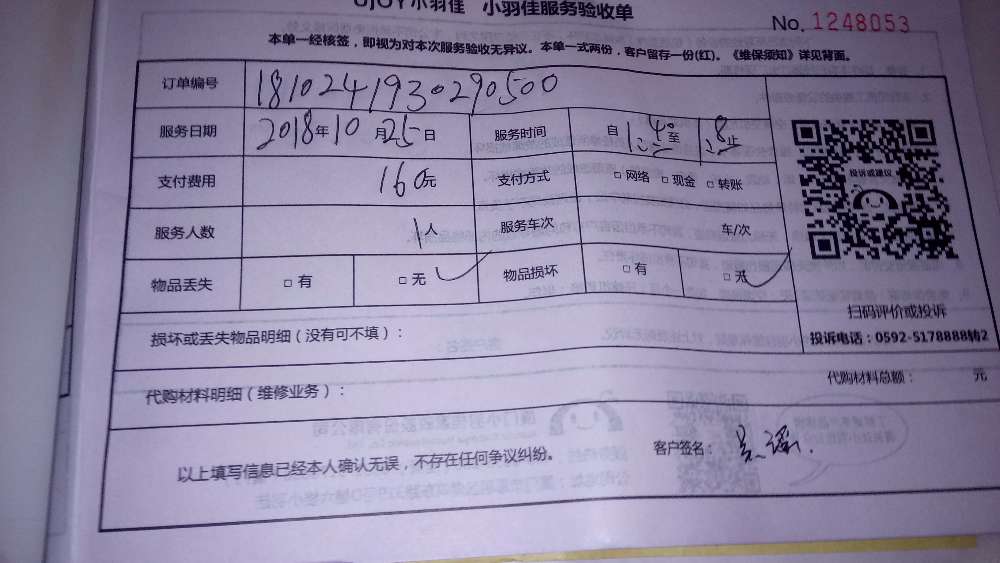 小羽佳 小羽佳服务验收单
No. 1248053
本单一经核签，即视为对本次服务验收无异议。本单一式两份，客户留存一份(红)。《维保须知》详见背面。
订单编号 181024193029050​0
服务日期 2018年10月25日 服务时间 自 至 止
支付费用 160元 支付方式 □ 网络 □ 现金 □ 转账
服务人数 1人 服务车次 车/次
物品丢失 □ 有 □ 无 ✓ 物品损坏 □ 有 □ 无 ✓
投诉或建议
扫码评价或投诉
投诉电话：0592-5178888转2
损坏或丢失物品明细（没有可不填）：
代购材料明细（维修业务）： 代购材料总额： 元
以上填写信息已经本人确认无误，不存在任何争议纠纷。 客户签名：